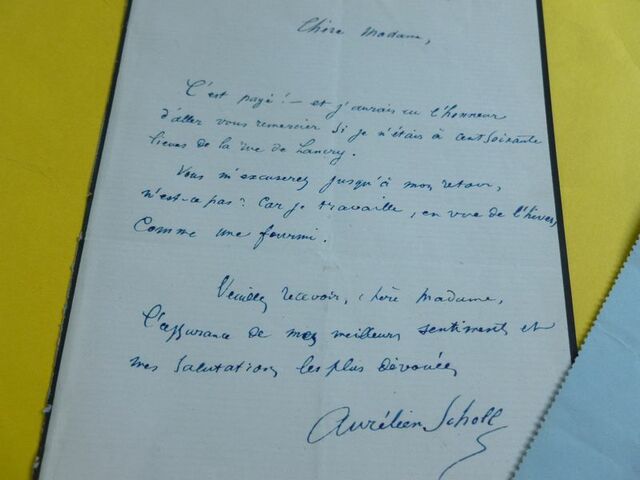 Chère Madame,
C'est payé! — et j'aurais eu l'honneur
d'aller vous remercier si je n'étais à cent soixante
lieues de la rue de Lancry.
Vous m'excuserez jusqu'à mon retour,
n'est-ce pas? Car je travaille, en vue de l'hiver,
Comme une fourmi.
Veuillez recevoir, chère Madame,
l'assurance de mes meilleurs sentiments et
mes salutations les plus dévouées
Aurélien Scholl